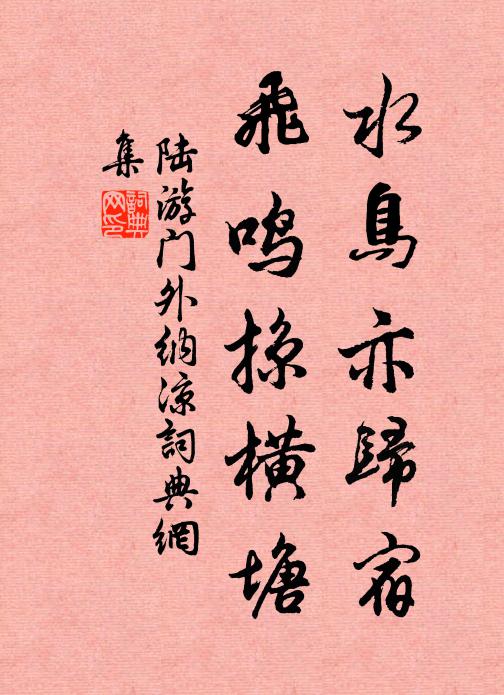 水鳥亦歸宿
飛鳴掠橫塘
陆游门外纳凉詞典網
集
詞典网印